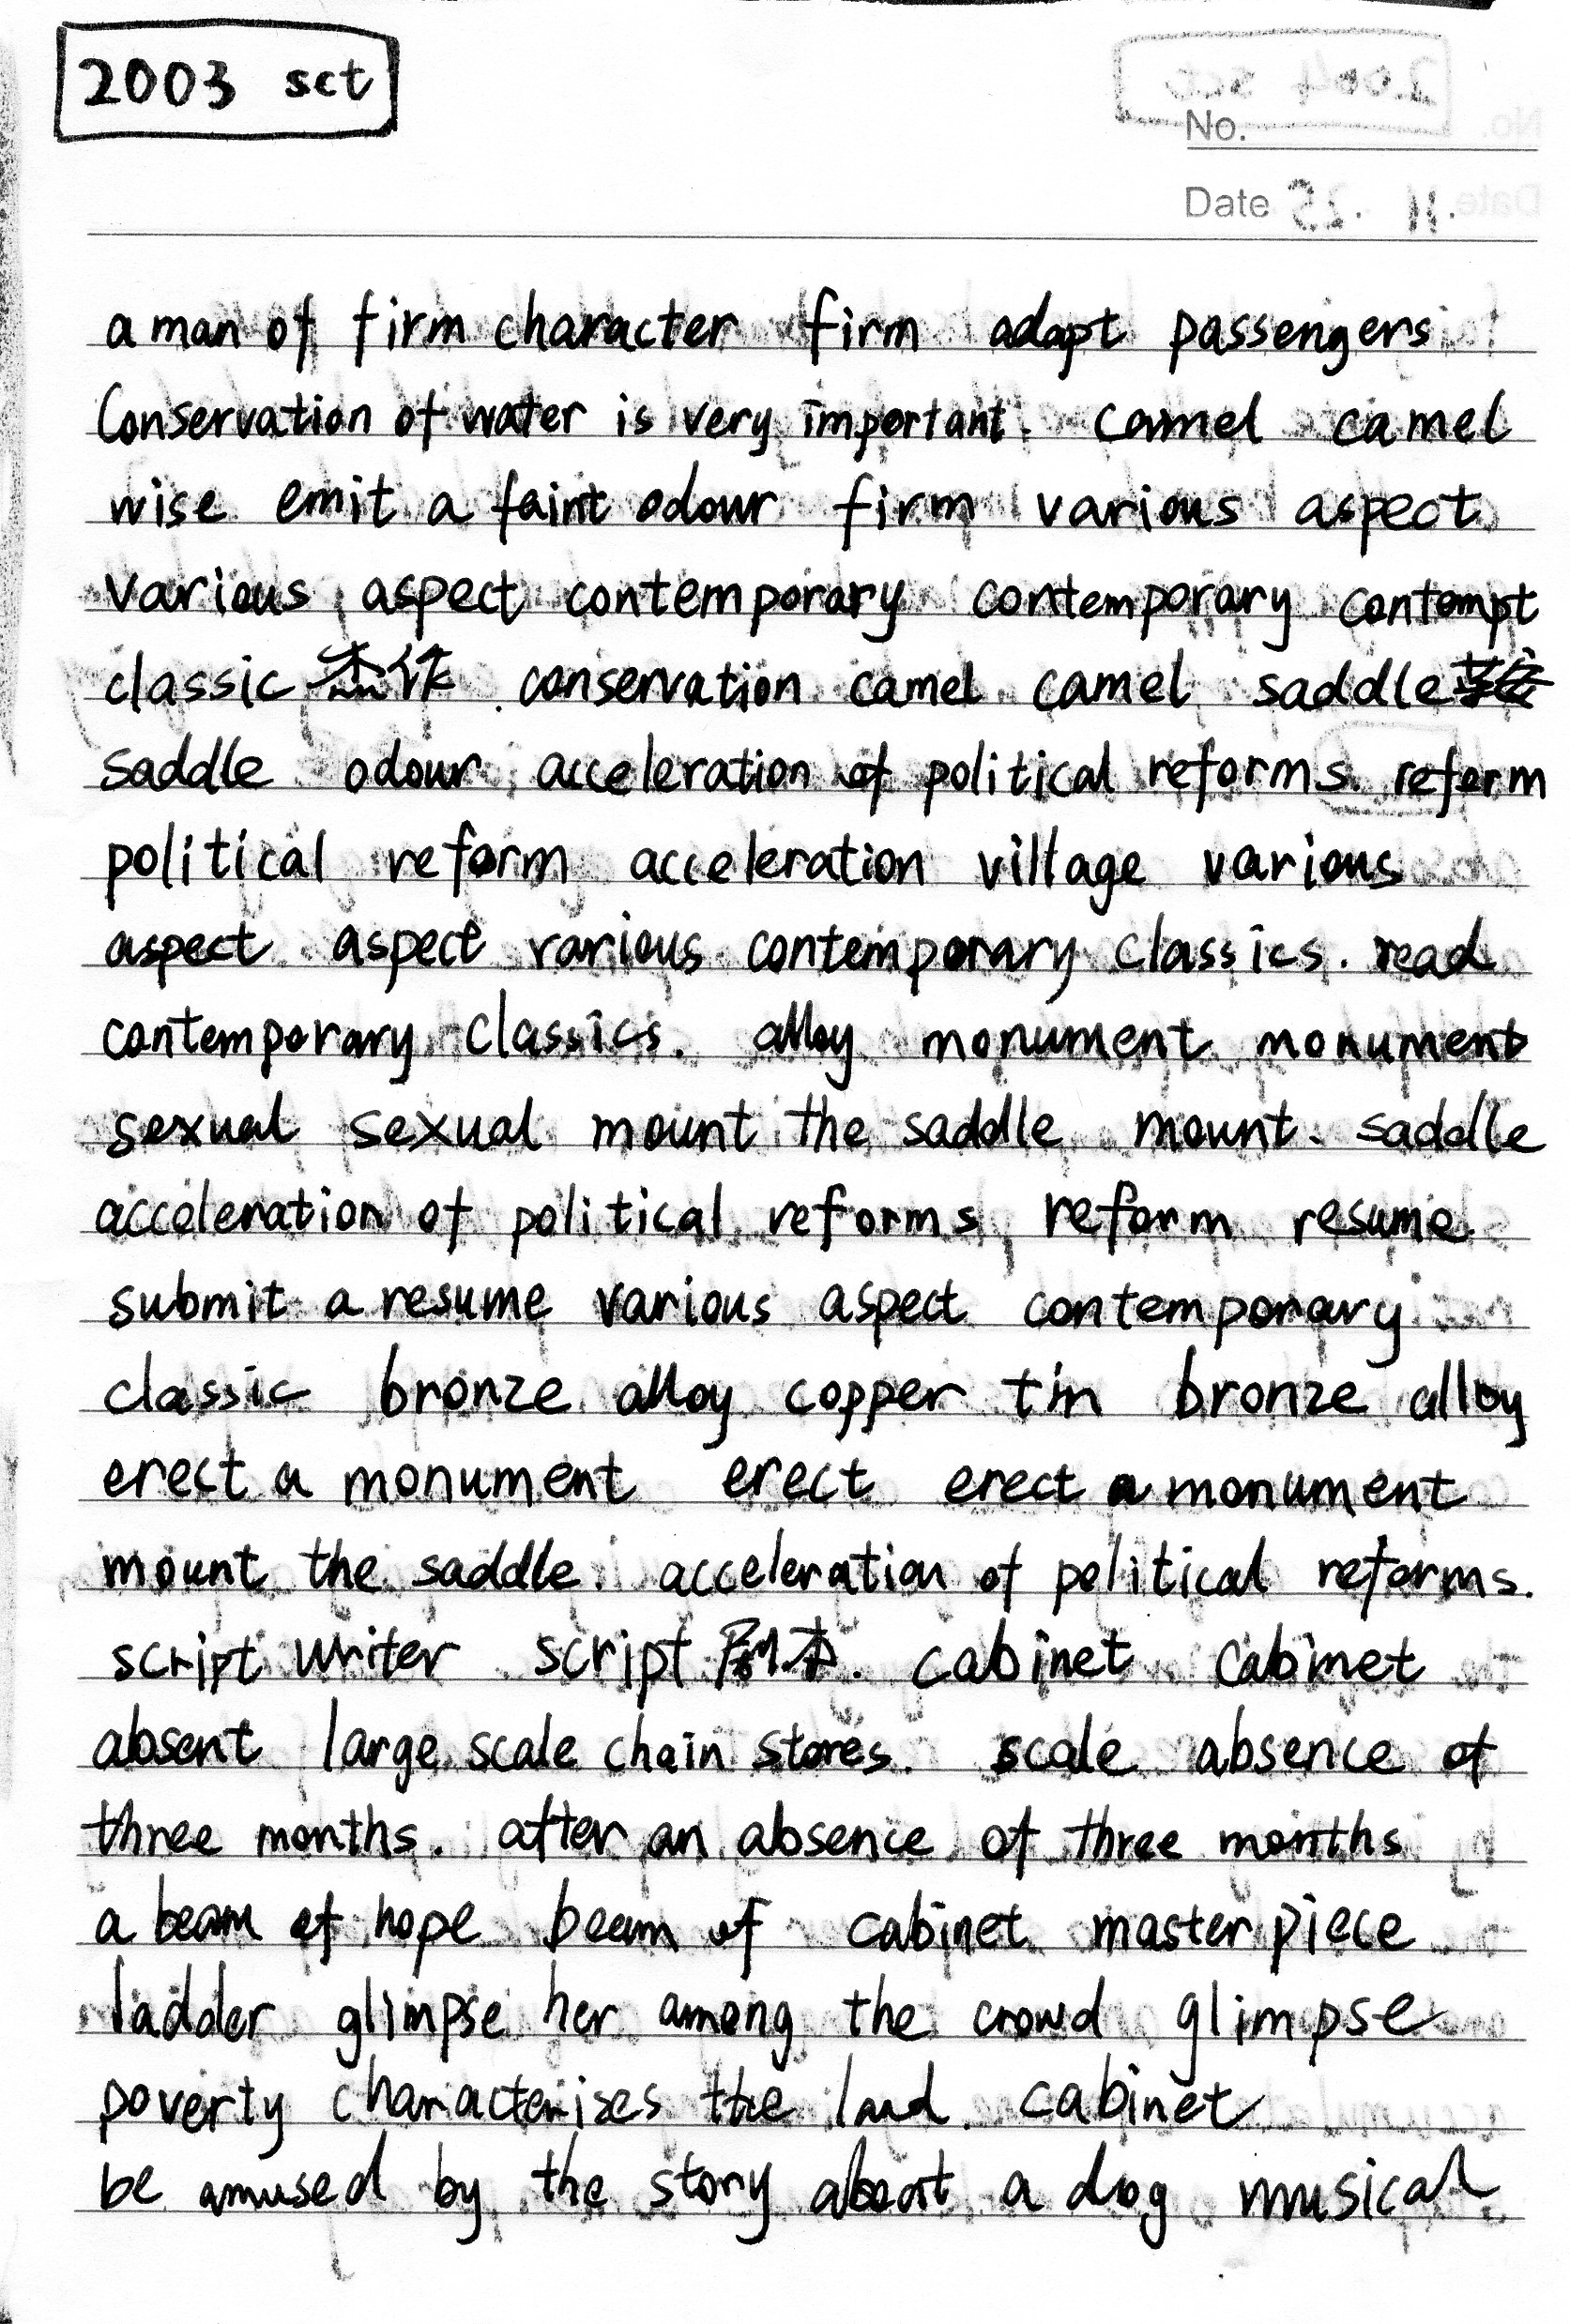 2003 sct
No.
Date
a man of firm character firm adapt passengers
Conservation of water is very important. camel camel
wise emit a faint odour firm various aspect
various aspect contemporary contemporary contempt
classic 杰作 conservation camel camel saddle
saddle odour acceleration of political reforms. reform
political reform acceleration village various
aspect aspect various contemporary classics. read
contemporary classics. alloy monument monument
sexual sexual mount the saddle mount. saddle
acceleration of political reforms reform resume
submit a resume various aspect contemporary
classic bronze alloy copper tin bronze alloy
erect a monument erect erect a monument
mount the saddle. acceleration of political reforms.
script writer script 剧本. cabinet cabinet
absent large scale chain stores. scale absence of
three months. after an absence of three months
a beam of hope beam of cabinet master piece
ladder glimpse her among the crowd glimpse
poverty characterises the land cabinet
be amused by the story about a dog musical